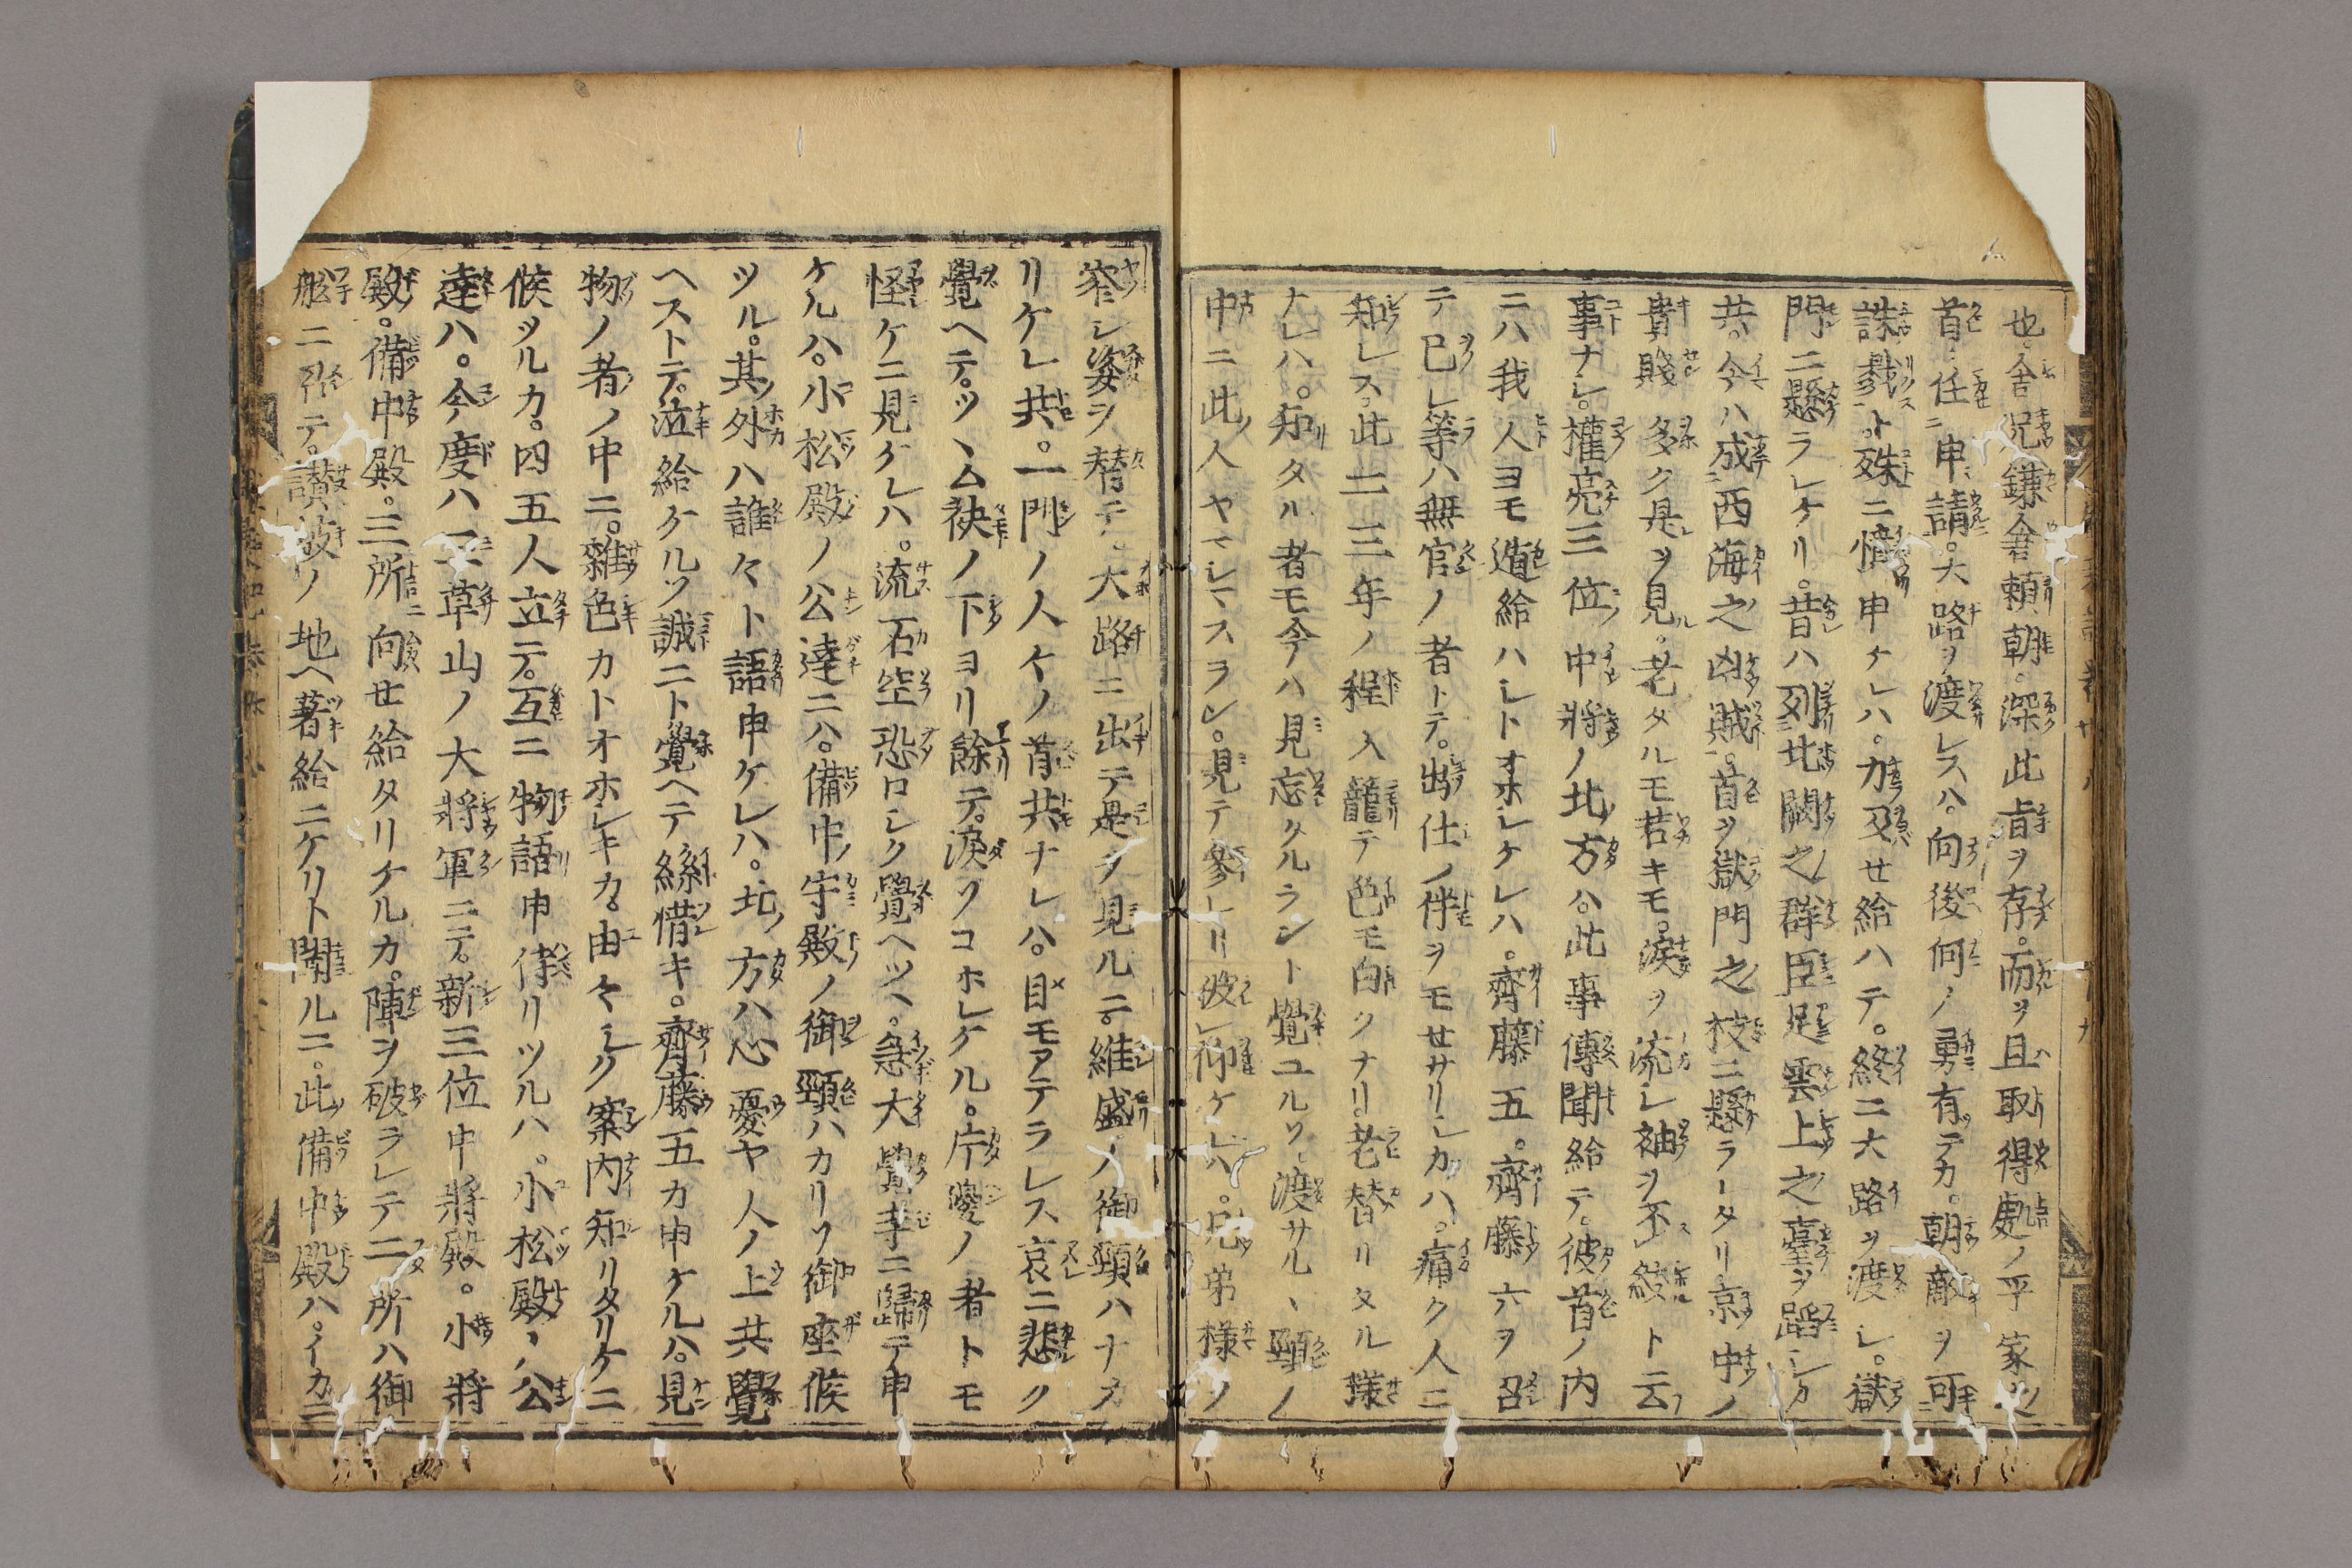 也。舎兄鎌倉頼朝。深此旨ヲ存。而ヲ且取得處ノ平家ノ
首。任申請。大路ヲ渡レスハ。向後何ノ勇有テカ。朝敵ヲ可
誅戮ト。殊ニ憤申ケレハ。力及セ給ハテ。終ニ大路ヲ渡シ。獄
門ニ懸ラレケリ。昔ハ列北闕之群臣足雲上之臺ヲ蹈シカ
共。今ハ成西海之凶賊。首ヲ獄門之枝ニ懸ラータリ。京中ノ
貴賤多ク是ヲ見。老タルモ若キモ。涙ヲ流シ袖ヲ不絞ト云
事ナシ。權亮三位中將ノ北方ハ。此事傳聞給テ。彼首ノ内
ニハ我人ヨモ遁給ハシトオホシケレハ。齊藤五。齊藤六ヲ召
テ己レ等ハ無官ノ者トテ。出仕ノ伴ヲモせサリシカハ。痛ク人ニ
知レス。此二三年ノ程入籠テ色モ白クナリ。老替リタル様
ナレハ。知タル者モ今ハ見忘タルランと覺ユルソ。渡サル丶頸ノ
中ニ此人ヤマシマスラン。見テ參レト被仰ケレハ。兄弟様ノ
窄シ姿ヲ替テ。大路ニ出テ是ヲ見ルニ。維盛ノ御頸ハナカ
リケレ共。一門ノ人々ノ首共ナレハ。目モアテラレス哀ニ悲ク
覺ヘテ。ツヽム袂ノ下ヨリ餘テ。涙ソコホレケル。片邊ノ者トモ
怪ケニ見ケレハ。流石空恐ロシク覺ヘツヽ。急大覺寺ニ歸テ申
ケルハ。小松殿ノ公達ニハ。備中ノ守殿ノ御頸ハカリソ御座候
ツル。其外ハ誰々ト語申ケレハ。北ノ方ハ心憂ヤ人ノ上共覺
ヘストテ。泣給ケルソ誠ニト覺ヘテ絲惜キ。齊藤五カ申ケルハ。見
物ノ者ノ中ニ。雜色カトオホシキカ。由々シク案内知リタリケニ
候ツルカ。四五人立テ。互ニ物語申侍リツルハ。小松殿ノ公
達ハ。今度ハ三草山ノ大將軍ニテ。新三位中將殿。小將
殿。備中殿。三所向せ給タリケルカ。陣ヲ破ラレテ二所ハ御
舩ニ乘テ。讃岐ノ地ヘ著給ニケリト聞ルニ。此備中殿ハ。イカニ